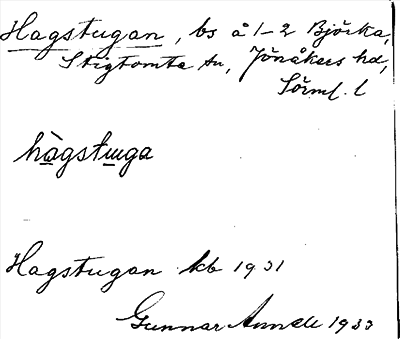 Hagstugan, bs å 1-2 Björka,
Stigtomta sn, Jönåkers hd,
Sörml. l
hàgstuga
Hagstugan kb 1931
Gunnar 1933